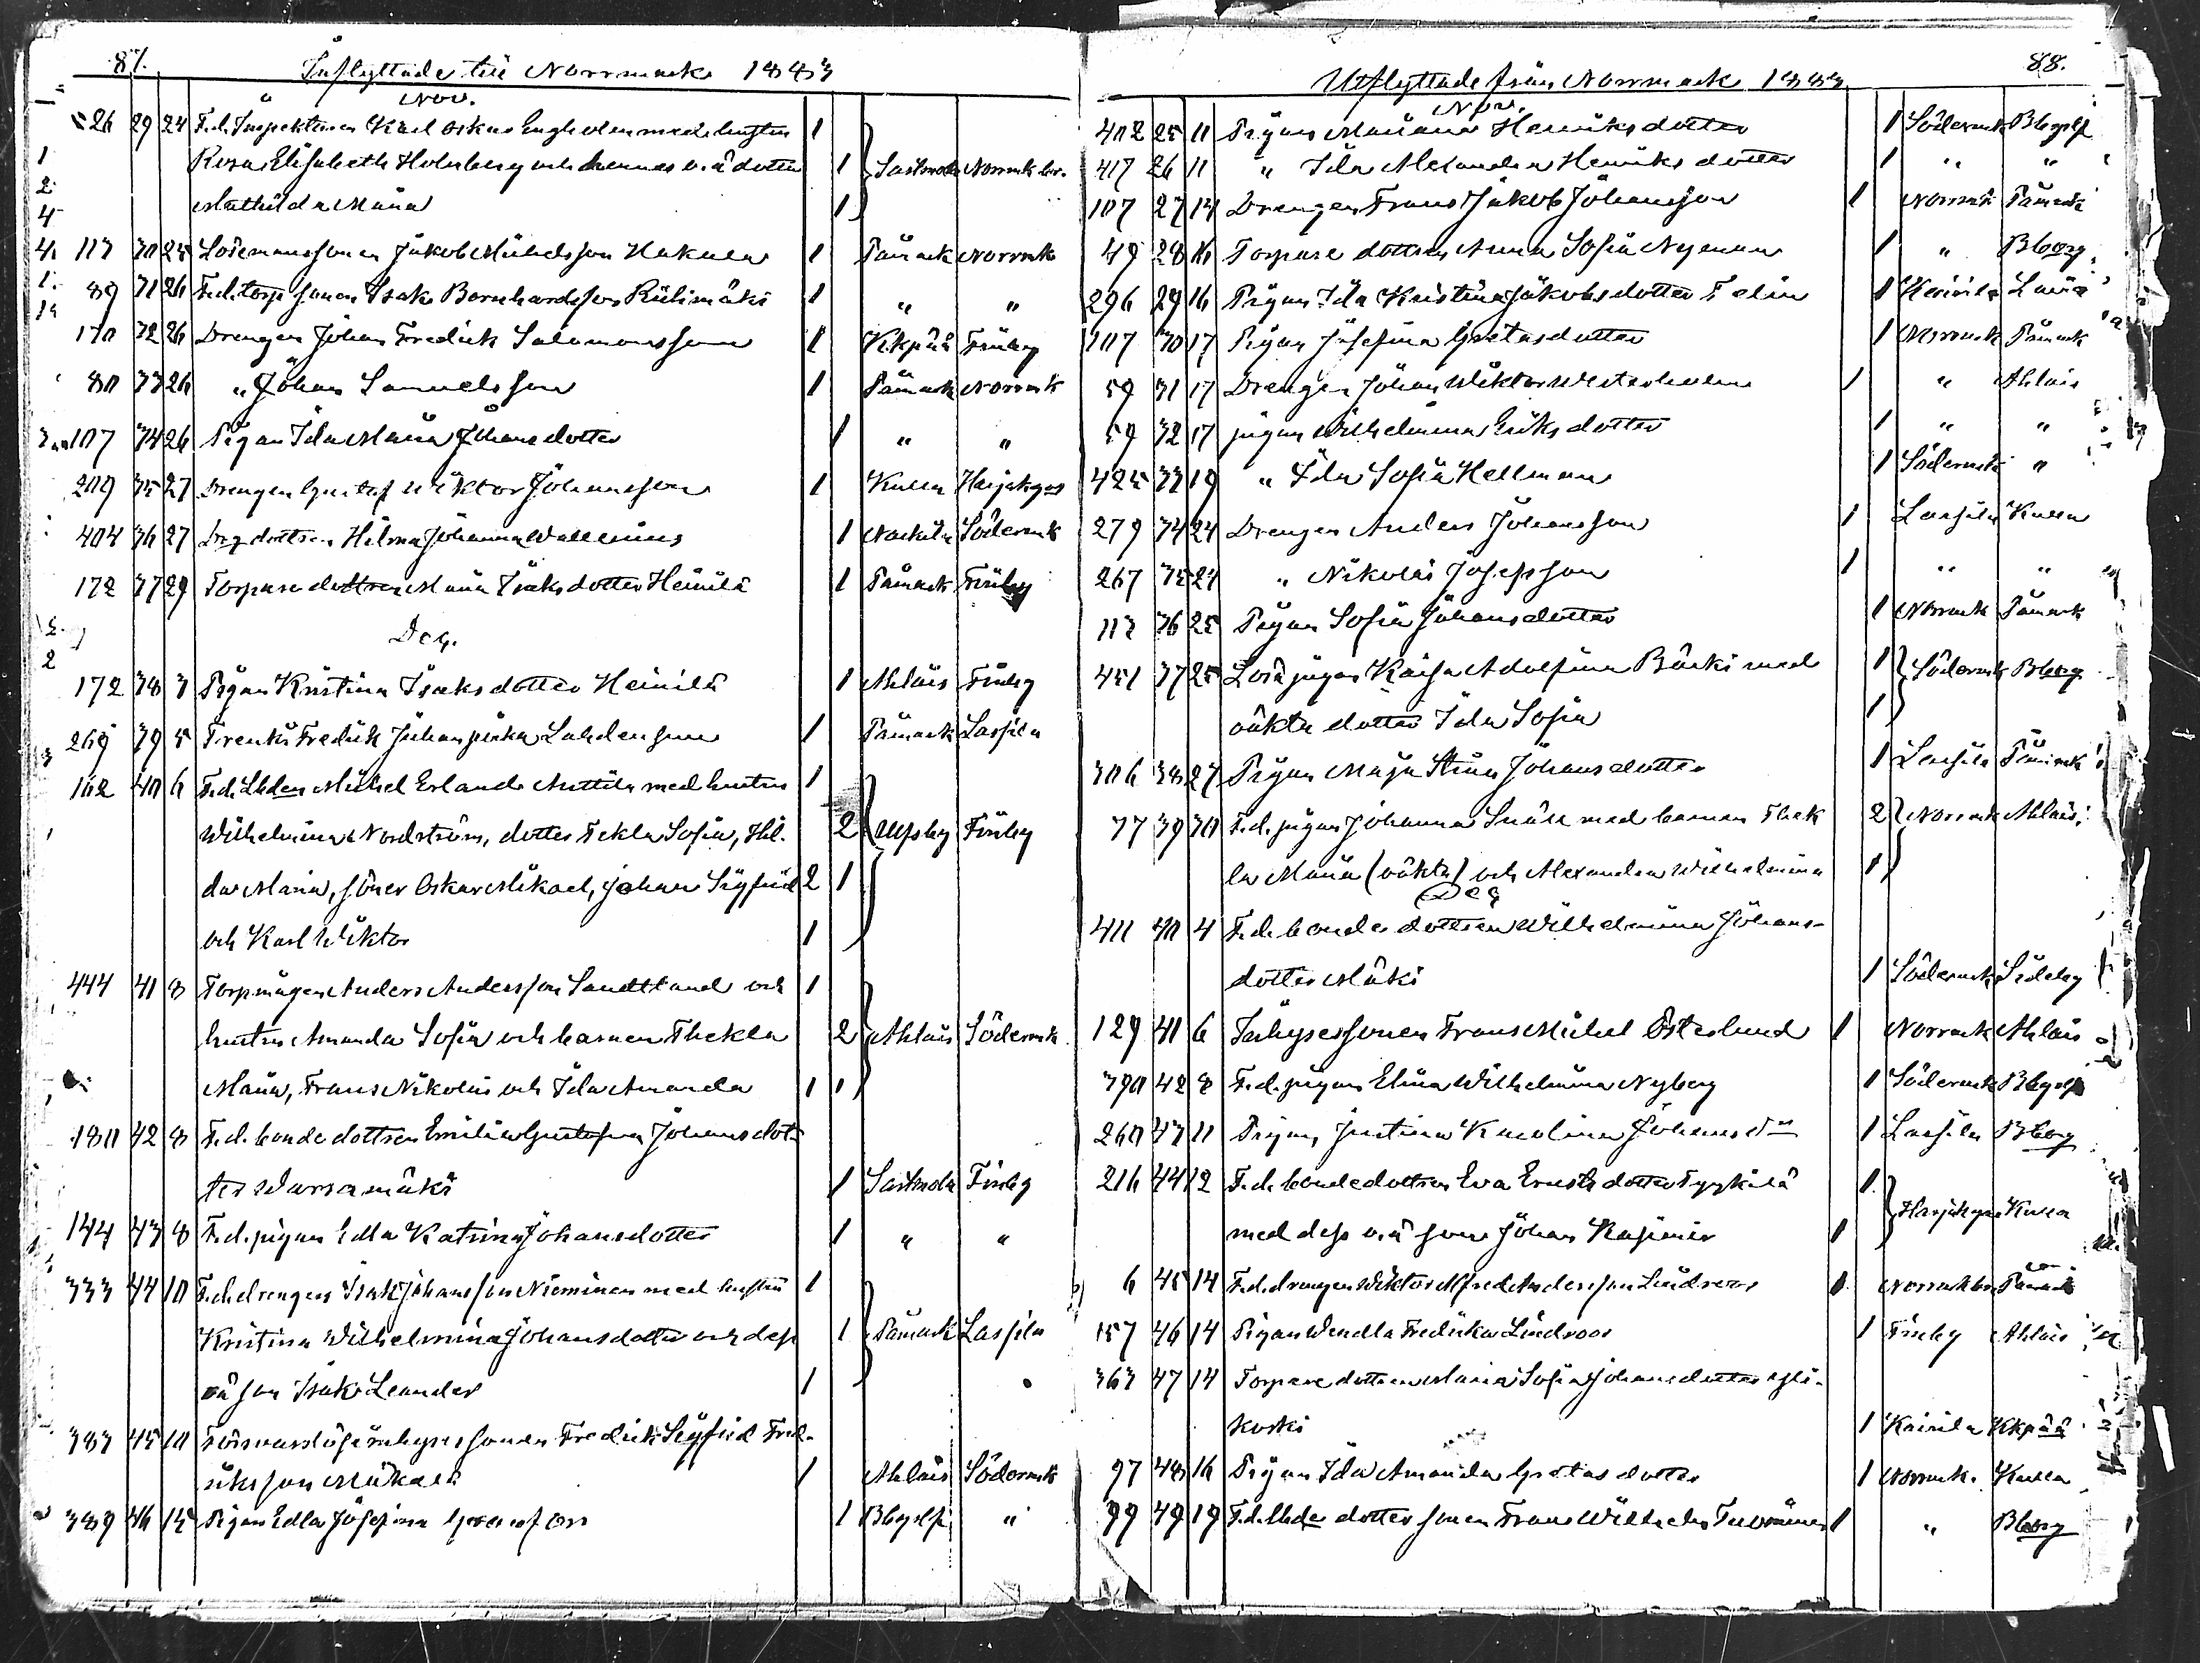 87.
Inflyttade till Norrmark 1883
Nov.
26 29 24 F.d. Inspektoren Karl Oskar Engholm med hustru 1
Rosa Elisabeth Holmberg och hennes o.ä dotter 1 Sastmola Norrmk
Mathilda Maria 1
113 30 25 Losemanssonen Jakob Mickelsson Hakala 1 Påmark Norrmk
89 31 26 F.d. torp sonen Isak Bernhardsson Riihimäki 1 " "
170 32 26 Drengen Johan Fredrik Salomonsson 1 Kkpää Finby
80 33 26 " Johan Samuelsson 1 Påmark Norrmk
107 34 26 Pigan Ida Maria Johansdotter 1 " "
209 35 27 Drengen Gustaf Wiktor Johansson 1 Kulla Harjakgas
404 36 27 dottren Hilma Johanna Wallenius 1 Nackila Södermk
172 37 29 Torpare dottren Maria Isaksdotter Heinilä 1 Påmark Finby
Dec.
172 38 3 Pigan Kristina Isaksdotter Heinilä 1 Ahlais Finby
269 79 5 Fredrik Lahdensuu 1 Påmark Lassila
162 40 6 F.d. Lbden Mickel Erland Anttila med hustru 1
Wilhelmina Nordström, dotter Tekla Sofia, Hil- 2 Ulfsby Finby
da Maria, söner Oskar Mikael, Johan Sigfrid 2 1
och Karl Wiktor 1
444 41 8 Torpmågen Anders Andersson Sandstrand och 1
hustru Amanda Sofia och barnen Thekla 2 Ahlais Södermk
Maria, Frans Nikolai och Ida Amanda 1 1
180 42 8 F.d. bonde dottren Emilia Gustafva Johansdot-
ter Warsamäki 1 Sastmola Finby
144 43 8 F.d. pigan Edla Katrina Johansdotter 1 " "
333 44 10 F.d. drengen Isak Johansson Nieminen med hustru 1
Kristina Wilhelmina Johansdotter och dess 1 Påmark Lassila
oä son Isak Leander 1
383 45 10 Försvarslöse inhysessonen Fredrik Sigfrid Fred-
riksson Mikola 1 Ahlais Södermk
389 46 15 Pigan Edla Josefina 1 Bbgslf "
88.
Utflyttade från Norrmark 1883
Nov.
402 25 11 Pigan Mariana Henriksdotter 1 Södermk Bbgslf
417 26 11 " Ida Alexandra Henriksdotter 1 " "
107 27 14 Drengen Frans Jakob Johansson 1 Norrmk Påmark
49 28 16 Torpare dottren Anna Sofia Nyman 1 " Bborg
296 29 16 Pigan Ida Kristina Jakobsdotter Felin 1 Kairila Lavia
107 30 17 Pigan Josefina Gretasdotter 1 Norrmk Påmark
59 31 17 Drengen Johan Wiktor Westerholm 1 " Ahlais
59 32 17 pigan Wilhelmina Eriksdotter 1 " "
425 33 19 " Ida Sofia Hellman 1 Södermk "
279 34 24 Drengen Anders Johansson 1 Lassila Kulla
267 35 24 " Nikolai Josefsson 1 " "
113 36 25 Pigan Sofia Johansdotter 1 Norrmk Påmark
451 37 25 Lösa pigan Kaisa Adolfina Bäcki med 1 Södermk Bborg
oäkta dotter Ida Sofia 1
306 38 27 Pigan Maja Stina Johansdotter 1 Lassila Påmark
77 39 30 F.d. pigan Johanna Snäll med barnen Thek- 2 Norrmk Ahlais
la Maria (oäkta) och Alexandra Wilhelmina 1
Dec
411 40 4 F.d. bonde dottren Wilhelmina Johans-
dotter Mäki 1 Södermk Sideby
129 41 6 Inhysessonen Frans Mickel Österlund 1 Norrmk Ahlais
390 42 8 F.d. pigan Elina Wilhelmina Nyberg 1 Södermk Bbgslf
260 43 11 Pigan Justina Karolina Johansdr 1 Lassila Bborg
216 44 12 F.d. bondedottren Eva Ersdotter Pyykilä 1
med dess o.ä son Johan Kasimir 1 Harjakgas Kulla
6 45 14 F.d. drengen Wiktor Alfred Andersson Lindroos 1 Norrmk Påmark
157 46 14 Pigan Wendla Fredrika Lindroos 1 Finby Ahlais
363 47 14 Torpare dottren Maria Sofia Johansdotter Yli-
koski 1 Kairila Kkpää
97 48 16 Pigan Ida Amanda Gretasdotter 1 Norrmk Kulla
99 49 19 F.d. Lbde dotter sonen Frans Wilhelm Tuominen 1 " Bborg